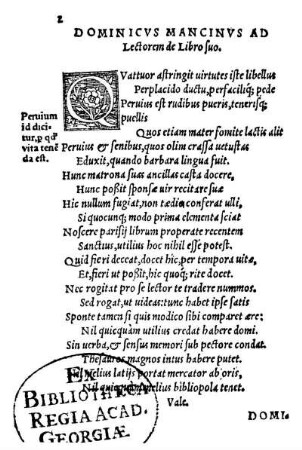 2
DOMINICVS MANCINVS AD
Lectorem de Libro suo.
QVattuor astringit uirtutes iste libellus
Perplacido ductu, perfacilíq; pede
Peruium
id dici-
tur, p qđ
vita tenē
da est.
Peruius est rudibus pueris, tenerísq;
puellis
Quos etiam mater fomite lactis alit
Peruius & senibus, quos olim crassa uetustas
Eduxit, quando barbara lingua fuit.
Hunc matrona suas ancillas casta docere,
Hunc poßit sponsæ uir recitare suæ
Hic nullum fugiat, non tædia conferat ulli,
Si quocunq; modo prima elementa sciat
Noscere parisij librum properate recentem
Sanctius, utilius hoc nihil esse potest.
Quid fieri deceat, docet hic, per tempora uitæ,
Et, fieri ut poßit, hic quoq; rite docet.
Nec rogitat pro se lector te tradere nummos.
Sed rogat, ut uideat: tunc habet ipse satis
Sponte tamen si quis modico sibi comparet ære:
Nil quicquàm utilius credat habere domi.
Sin uerba, & sensus memori sub pectore condat.
Thesauros magnos intus habere putet.
Nil melius latijs portat mercator ab oris,
Nil quicquam melius bibliopola tenet.
Vale.
DOMI-
EX
BIBLIOTHECA
REGIA ACAD.
GEORGIÆ